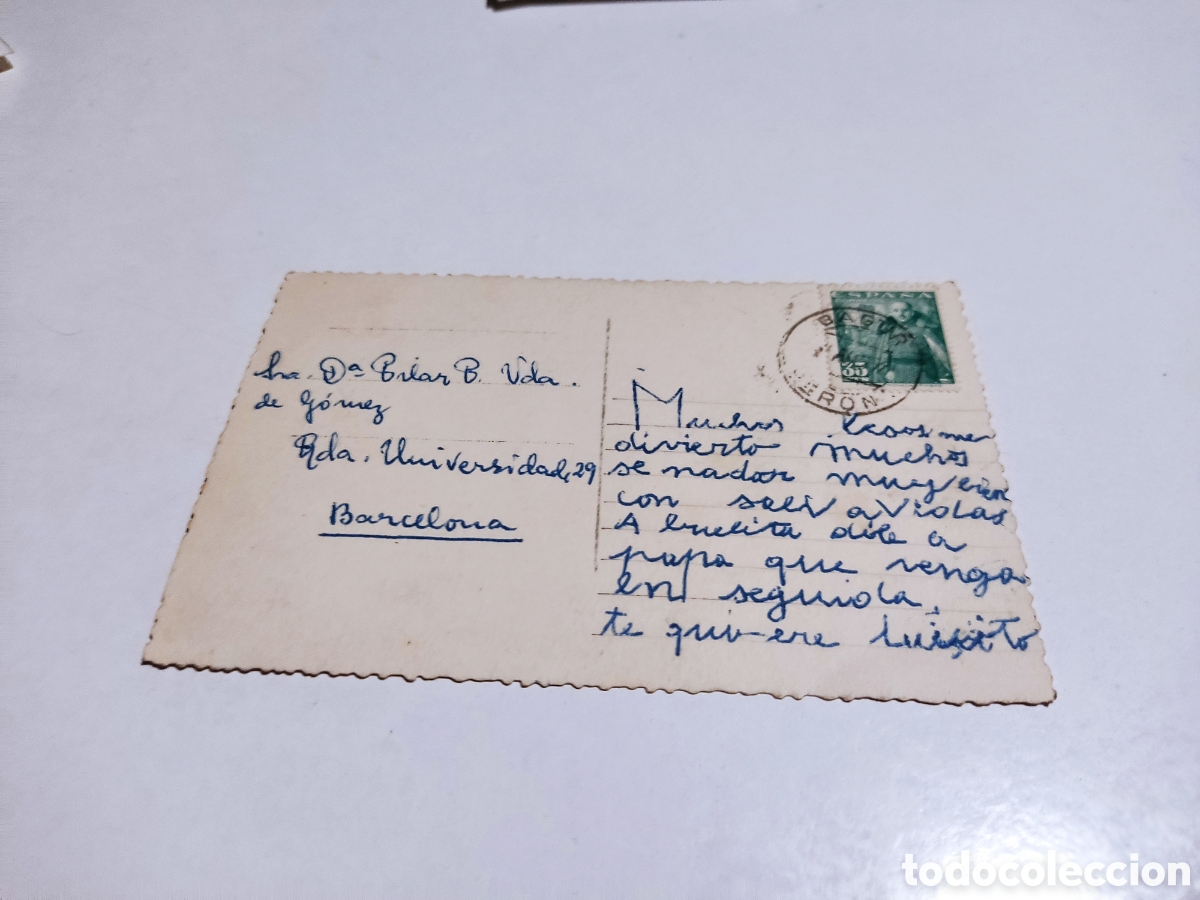 Sra. Dª Pilar B. Vda.
de Gómez
Rda. Universidad, 29
Barcelona
ESPAÑA
35
BAGUR
GERON
Muchos besos me
divierto muchos
se nadar muy bien
con salvavidas
Abuelita dile a
papa que venga
en seguida.
te quiere Luisito
todocoleccion